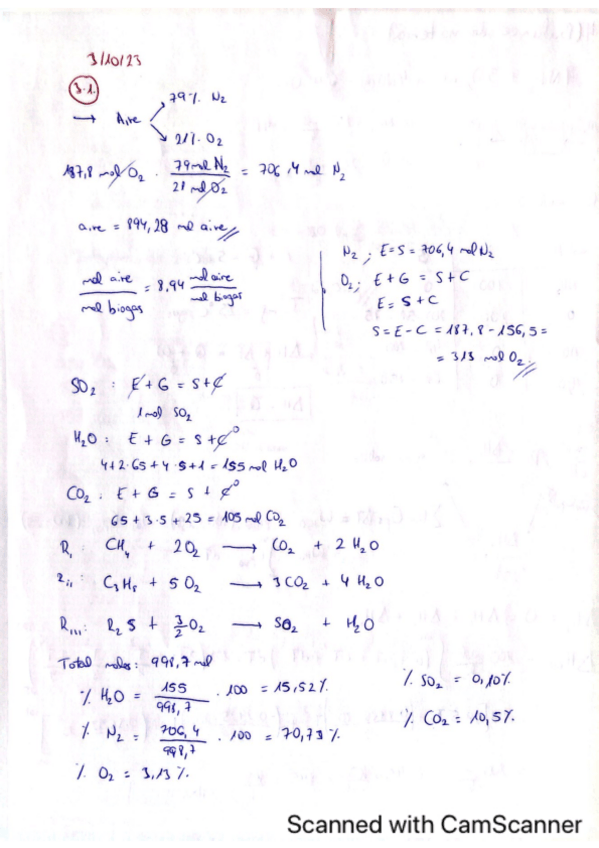 3/10/23
3.1.
79% N₂
→ Aire
21% O₂
187,8 mol O₂ · 79 mol N₂ / 21 mol O₂ = 706,4 mol N₂
aire = 894,28 mol aire
mol aire / mol biogas = 8,94 mol aire / mol biogas
N₂ ; E=S= 706,4 mol N₂
O₂ ; E+G = S+C
E = S+C
S=E-C = 187,8-156,5 =
= 313 mol O₂
SO₂ : E+G = S+C
1 mol SO₂
H₂O : E+G = S+C⁰
4+2·65+4·5+1 = 155 mol H₂O
CO₂ : E+G = S+C⁰
65+3·5+25 = 105 mol CO₂
R, CH₄ + 2O₂ → CO₂ + 2 H₂O
2,, C₃H₈ + 5 O₂ → 3CO₂ + 4 H₂O
R,,,: R₂ S + 3/2 O₂ → SO₂ + H₂O
Total moles: 998,7 mol
% H₂O = 155 / 998,7 · 100 = 15,52%
% N₂ = 706,4 / 998,7 · 100 = 70,73 %
% O₂ = 3,13 %
% SO₂ = 0,10%
% CO₂ = 10,5%
Scanned with CamScanner